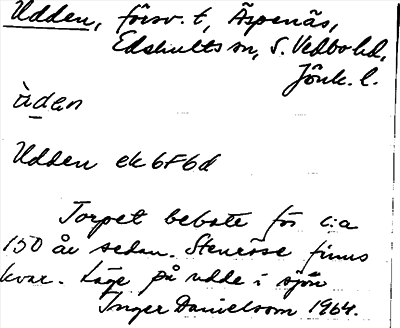 Udden, försv. t, Äspenäs,
Edshults sn, S. Vedbo hd,
Jönk. l.
ùden
Udden ek 6F6d
Torpet bebote för c:a
150 år sedan. Stenröse finns
kvar. Läge på udde i sjön
Inger Danielsson 1964.